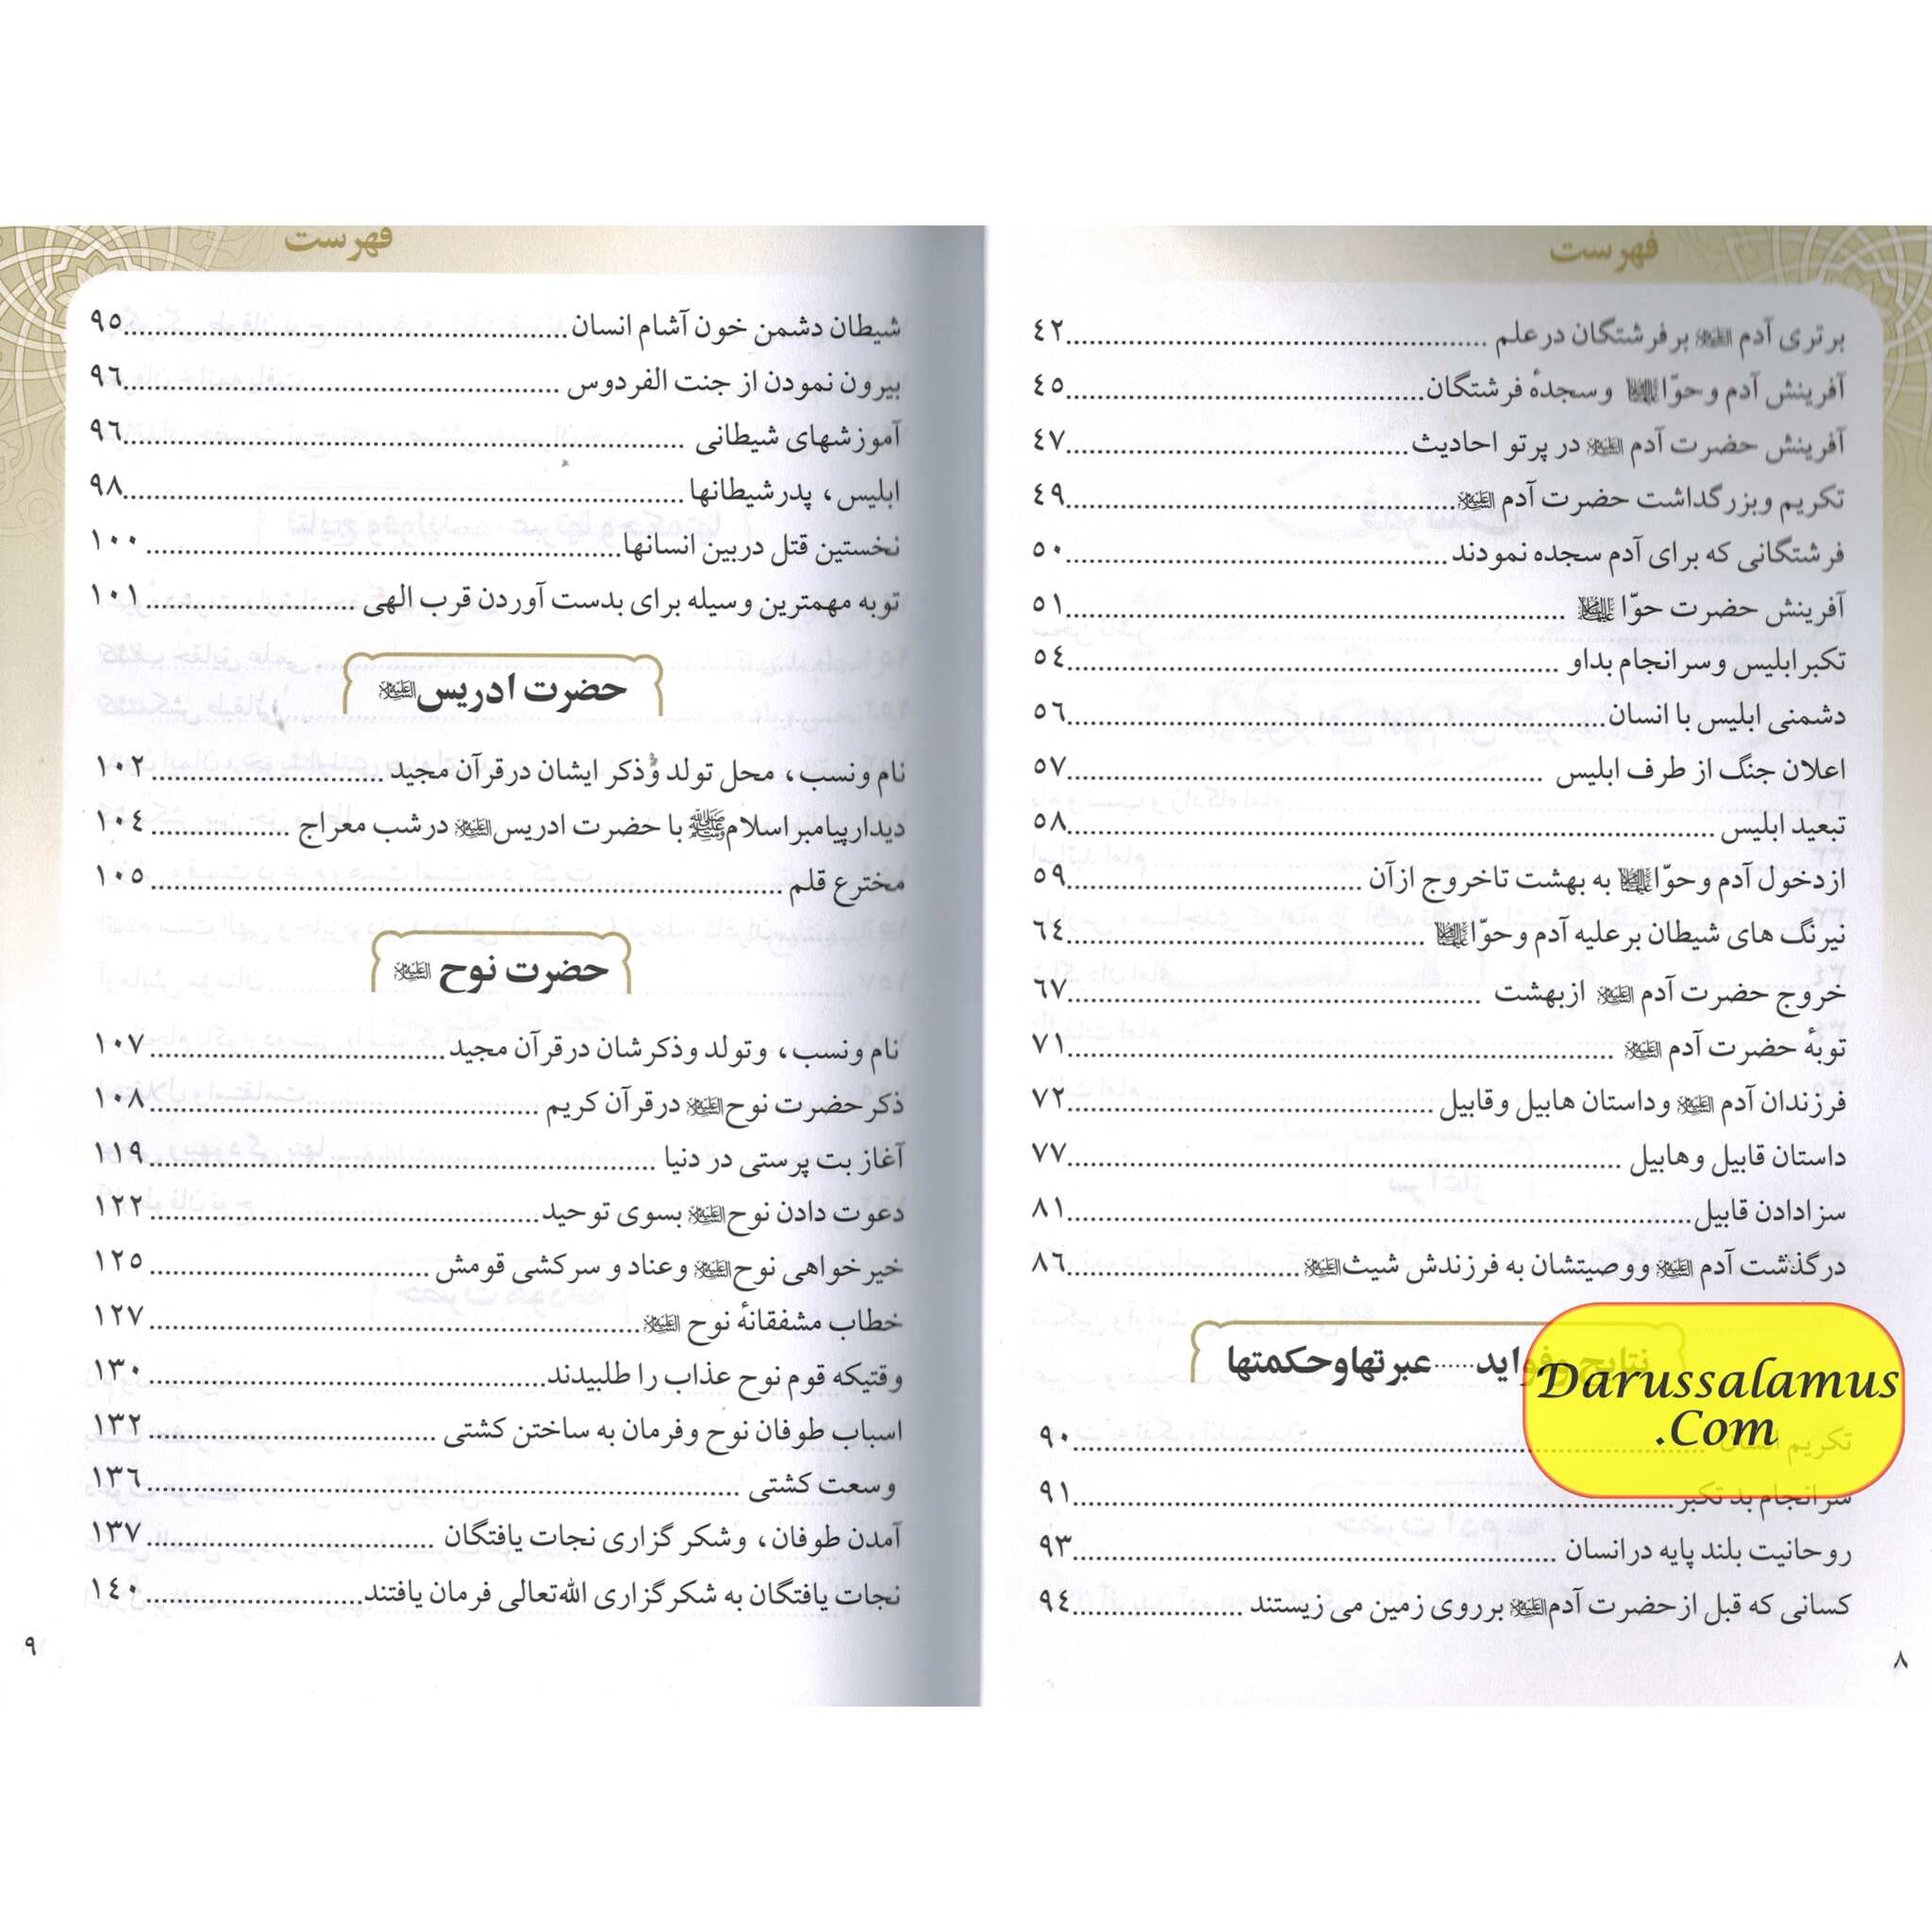 فهرست
برتری آدم علیه السلام بر فرشتگان در علم ... ٤٢
آفرینش آدم و حوّا علیهما السلام و سجدهٔ فرشتگان ... ٤٥
آفرینش حضرت آدم علیه السلام در پرتو احادیث ... ٤٧
تکریم وبزرگداشت حضرت آدم علیه السلام ... ٤٩
فرشتگانی که برای آدم سجده نمودند ... ٥٠
آفرینش حضرت حوّا علیها السلام ... ٥١
تکبر ابلیس و سرانجام بد او ... ٥٤
دشمنی ابلیس با انسان ... ٥٦
اعلان جنگ از طرف ابلیس ... ٥٧
تبعید ابلیس ... ٥٨
از دخول آدم وحوّا علیهما السلام به بهشت تا خروج از آن ... ٥٩
نیرنگ های شیطان بر علیه آدم و حوّا علیهما السلام ... ٦٤
خروج حضرت آدم علیه السلام از بهشت ... ٦٧
توبهٔ حضرت آدم علیه السلام ... ٧١
فرزندان آدم علیه السلام و داستان هابیل وقابیل ... ٧٢
داستان قابیل وهابیل ... ٧٧
سزا دادن قابیل ... ٨١
درگذشت آدم علیه السلام ووصیتشان به فرزندش شیث علیه السلام ... ٨٦
نتایج وفواید ...... عبرتها وحکمتها
تکریم ... ٩٠
سرانجام بد تکبر ... ٩١
روحانیت بلند پایه در انسان ... ٩٣
کسانی که قبل از حضرت آدم علیه السلام بر روی زمین می زیستند ... ٩٤
٨
Darussalamus
.Com
فهرست
شیطان دشمن خون آشام انسان ... ٩٥
بیرون نمودن از جنت الفردوس ... ٩٦
آموزشهای شیطانی ... ٩٦
ابلیس، پدر شیطانها ... ٩٨
نخستین قتل دربین انسانها ... ١٠٠
توبه مهمترین وسیله برای بدست آوردن قرب الهی ... ١٠١
حضرت ادریس علیه السلام
نام ونسب، محل تولد وذکر ایشان در قرآن مجید ... ١٠٢
دیدار پیامبر اسلام ﷺ با حضرت ادریس علیه السلام در شب معراج ... ١٠٤
مخترع قلم ... ١٠٥
حضرت نوح علیه السلام
نام ونسب، وتولد وذکرشان در قرآن مجید ... ١٠٧
ذکر حضرت نوح علیه السلام در قرآن کریم ... ١٠٨
آغاز بت پرستی در دنیا ... ١١٩
دعوت دادن نوح علیه السلام بسوی توحید ... ١٢٢
خیرخواهی نوح علیه السلام وعناد و سرکشی قومش ... ١٢٥
خطاب مشفقانهٔ نوح علیه السلام ... ١٢٧
وقتیکه قوم نوح عذاب را طلبیدند ... ١٣٠
اسباب طوفان نوح وفرمان به ساختن کشتی ... ١٣٢
وسعت کشتی ... ١٣٦
آمدن طوفان، وشکر گزاری نجات یافتگان ... ١٣٧
نجات یافتگان به شکرگزاری الله‌تعالی فرمان یافتند ... ١٤٠
٩